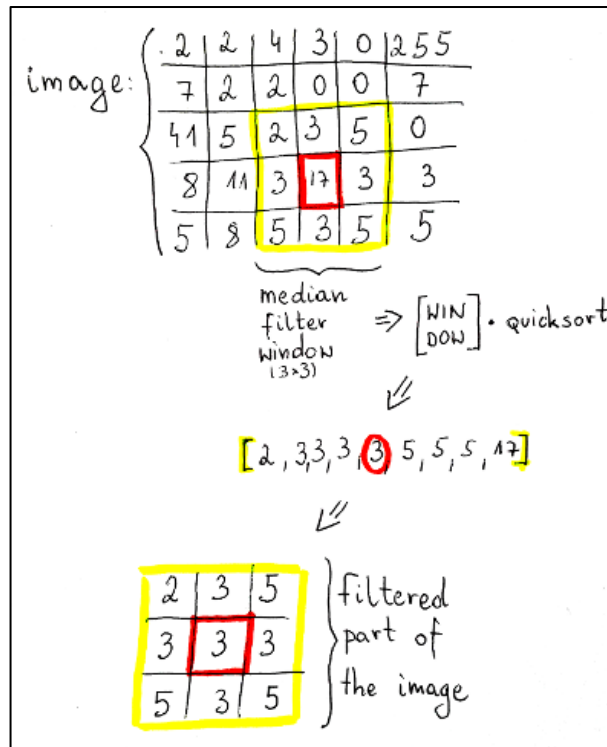 2 2 4 3 0 255
image:
7 2 2 0 0 7
41 5 2 3 5 0
8 11 3 17 3 3
5 8 5 3 5 5
median
filter
window
(3×3)
⇒ [WIN
DOW] • quicksort
⇙
[2, 3, 3, 3, 3, 5, 5, 5, 17]
⇙
2 3 5
3 3 3
5 3 5
filtered
part of
the image